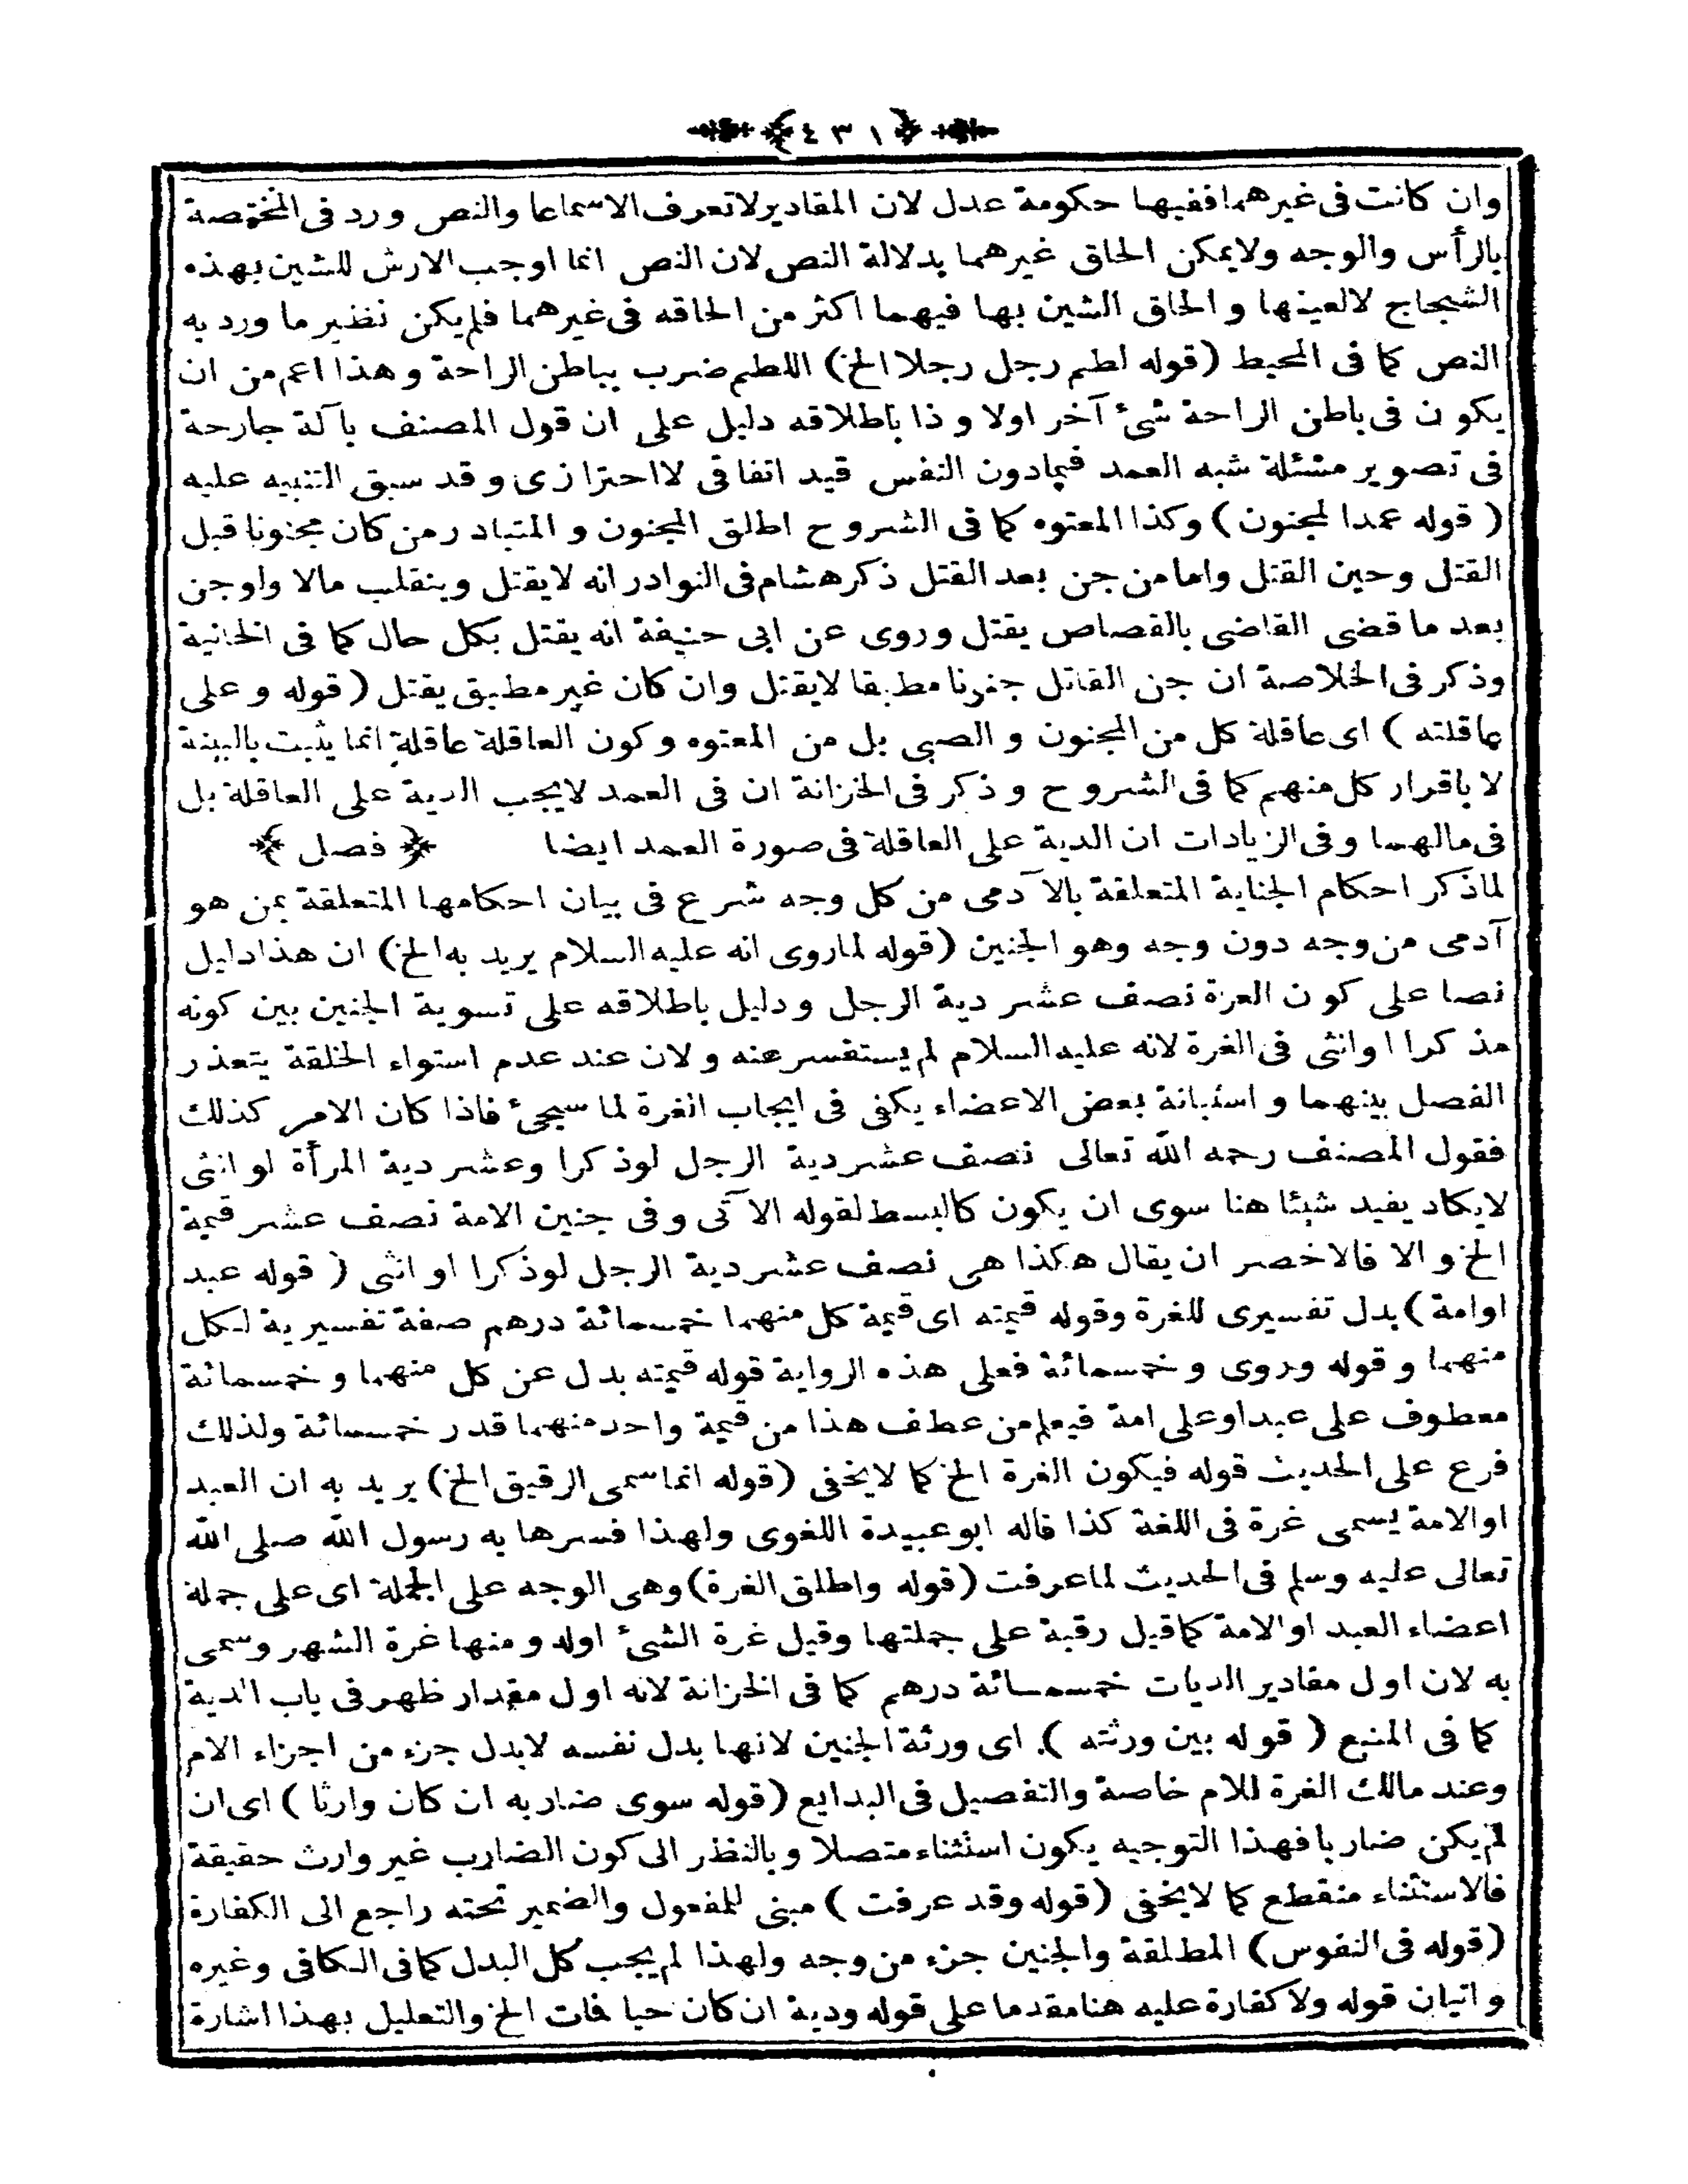 ﴿ ٤٣١ ﴾
وان كانت فى غيرهما ففيها حكومة عدل لان المقادير لاتعرف الاسماعا والنص ورد فى المختصة
بالرأس والوجه ولايمكن الحاق غيرهما بدلالة النص لان النص انما اوجب الارش للشين بهذه
الشجاج لالعينها و الحاق الشين بها فيهما اكثر من الحاقه فى غيرهما فلم يكن نظير ما ورد به
النص كما فى المحيط (قوله لطم رجل رجلا الخ) اللطم ضرب بباطن الراحة و هذا اعم من ان
يكون فى باطن الراحة شئ آخر اولا و ذا باطلاقه دليل على ان قول المصنف بآلة جارحة
فى تصوير مسئلة شبه العمد فيمادون النفس قيد اتفاقى لااحترازى و قد سبق التنبيه عليه
( قوله عمدا لمجنون ) وكذا المعتوه كما فى الشروح اطلق المجنون و المتبادر من كان مجنونا قبل
القتل وحين القتل واما من جن بعد القتل ذكر هشام فى النوادر انه لايقتل وينقلب مالا ولوجن
بعد ما قضى القاضى بالقصاص يقتل وروى عن ابى حنيفة انه يقتل بكل حال كما فى الخانية
وذكر فى الخلاصة ان جن القاتل جنونا مطبقا لايقتل وان كان غير مطبق يقتل ( قوله و على
عاقلته ) اى عاقلة كل من المجنون و الصبى بل من المعتوه و كون العاقلة عاقلة انما يثبت بالبينة
لا باقرار كل منهم كما فى الشروح و ذكر فى الخزانة ان فى العمد لايجب الدية على العاقلة بل
فى مالهما و فى الزيادات ان الدية على العاقلة فى صورة العمد ايضا ﴿ فصل ﴾
لماذكر احكام الجناية المتعلقة بالآدمى من كل وجه شرع فى بيان احكامها المتعلقة بمن هو
آدمى من وجه دون وجه وهو الجنين (قوله لماروى انه عليه السلام يريد به الخ) ان هذا دليل
نصا على كون الغرة نصف عشر دية الرجل و دليل باطلاقه على تسوية الجنين بين كونه
مذكرا اوانثى فى الغرة لانه عليه السلام لم يستفسر عنه و لان عند عدم استواء الخلقة يتعذر
الفصل بينهما و استبانة بعض الاعضاء يكفى فى ايجاب الغرة لما سيجئ فاذا كان الامر كذلك
فقول المصنف رحمه الله تعالى نصف عشر دية الرجل لوذكرا وعشر دية المرأة لو انثى
لايكاد يفيد شيئا هنا سوى ان يكون كالبسط لقوله الآتى و فى جنين الامة نصف عشر قيمة
الخ و الا فالاخصر ان يقال هكذا هى نصف عشر دية الرجل لوذكرا او انثى ( قوله عبد
اوامة ) بدل تفسيرى للغرة وقوله قيمته اى قيمة كل منهما خمسمائة درهم صفة تفسيرية لكل
منهما و قوله وروى و خمسمائة فعلى هذه الرواية قوله قيمته بدل عن كل منهما و خمسمائة
معطوف على عبداوعلى امة فيعلم من عطف هذا من قيمة واحد منهما قدر خمسمائة ولذلك
فرع على الحديث قوله فيكون الغرة الخ كما لايخفى (قوله انماسمى الرقيق الخ) يريد به ان العبد
اوالامة يسمى غرة فى اللغة كذا قاله ابو عبيدة اللغوى ولهذا فسرها به رسول الله صلى الله
تعالى عليه وسلم فى الحديث لماعرفت (قوله واطلق الغرة) وهى الوجه على الجملة اى على جملة
اعضاء العبد اوالامة كماقيل رقبة على جملتها وقيل غرة الشئ اوله و منها غرة الشهر وسمى
به لان اول مقادير الديات خمسمائة درهم كما فى الخزانة لانه اول مقدار ظهر فى باب الدية
كما فى المنبع ( قوله بين ورثته ) اى ورثة الجنين لانها بدل نفسه لابدل جزء من اجزاء الام
وعند مالك الغرة للام خاصة والتفصيل فى البدايع (قوله سوى ضاربه ان كان وارثا ) اى ان
لم يكن ضاربا فهذا التوجيه يكون استثناء متصلا و بالنظر الى كون الضارب غير وارث حقيقة
فالاستثناء منقطع كما لايخفى (قوله وقد عرفت ) مبنى للمفعول والضمير تحته راجع الى الكفارة
(قوله فى النفوس) المطلقة والجنين جزء من وجه ولهذا لم يجب كل البدل كمافى الكافى وغيره
و اتيان قوله ولا كفارة عليه هنا مقدما على قوله ودية ان كان حيا فمات الخ والتعليل بهذا اشارة